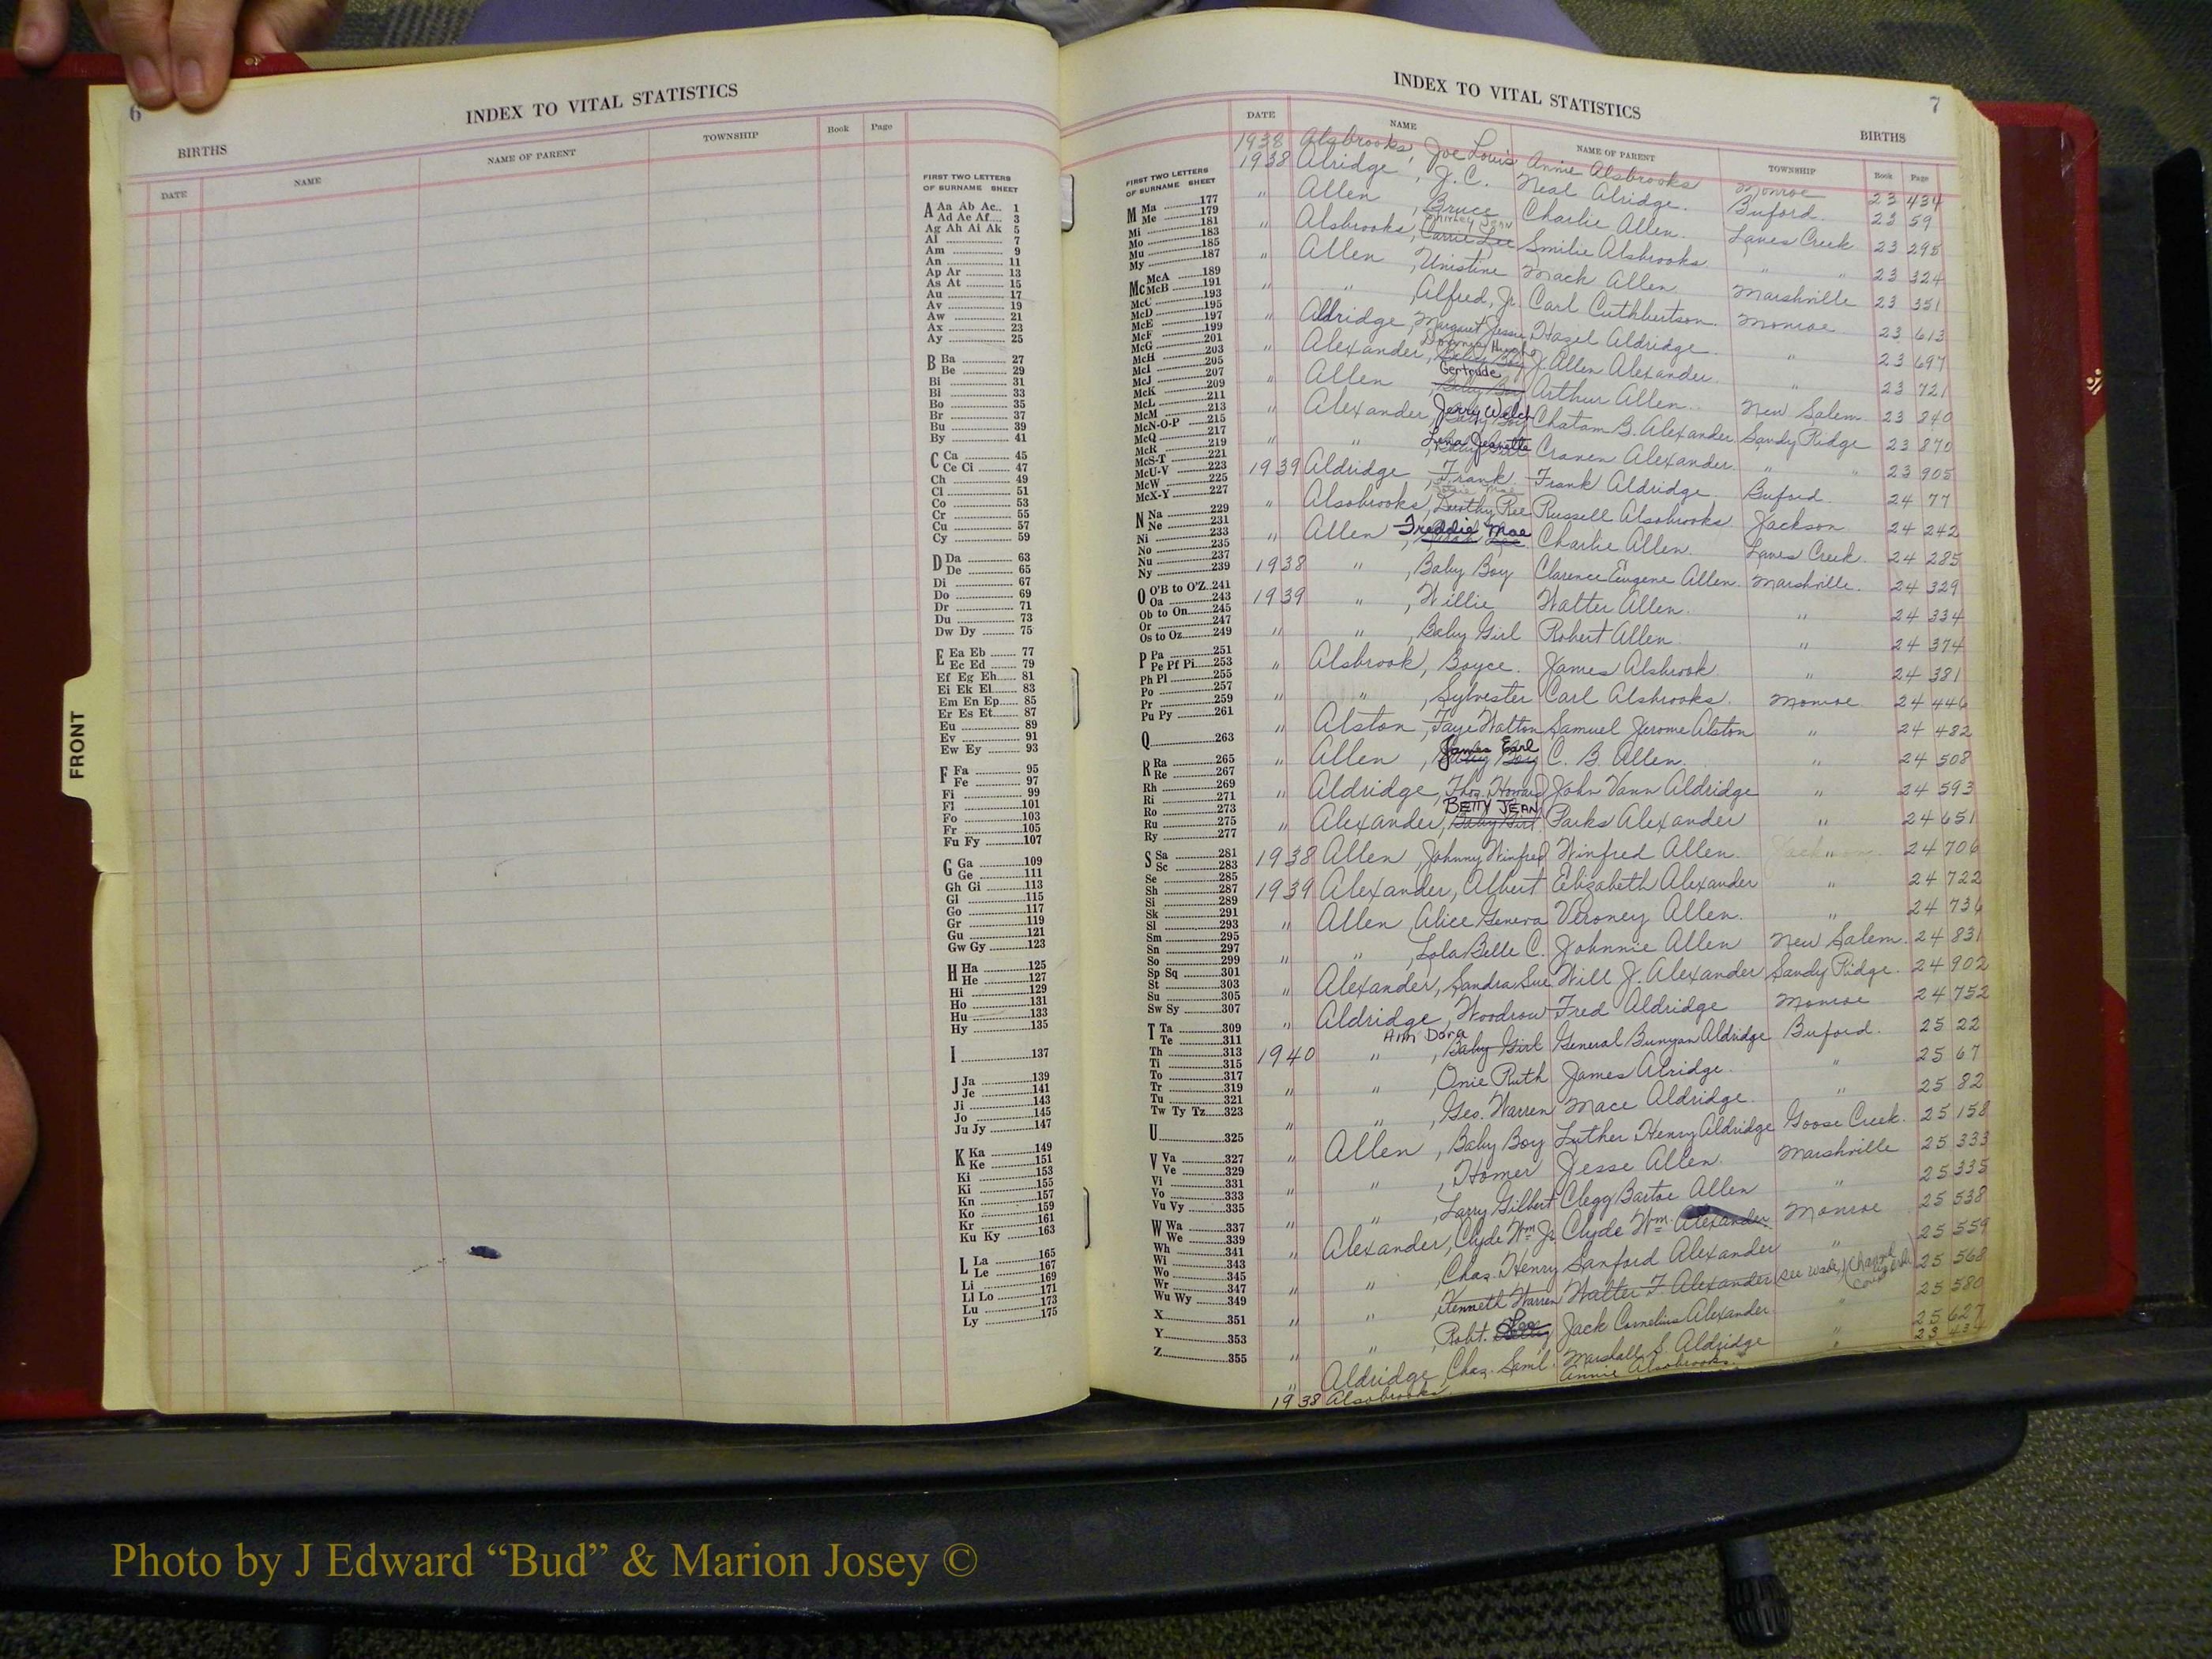 6
INDEX TO VITAL STATISTICS
BIRTHS
DATE NAME NAME OF PARENT TOWNSHIP Book Page
FIRST TWO LETTERS
OF SURNAME SHEET
A Aa Ab Ac.. 1
Ad Ae Af.... 3
Ag Ah Ai Ak 5
Al 7
Am 9
An 11
Ap Ar 13
As At 15
Au 17
Av 19
Aw 21
Ax 23
Ay 25
B Ba 27
Be 29
Bi 31
Bl 33
Bo 35
Br 37
Bu 39
By 41
C Ca 45
Ce Ci 47
Ch 49
Cl 51
Co 53
Cr 55
Cu 57
Cy 59
D Da 63
De 65
Di 67
Do 69
Dr 71
Du 73
Dw Dy 75
E Ea Eb 77
Ec Ed 79
Ef Eg Eh 81
Ei Ek El 83
Em En Ep 85
Er Es Et 87
Eu 89
Ev 91
Ew Ey 93
F Fa 95
Fe 97
Fi 99
Fl 101
Fo 103
Fr 105
Fu Fy 107
G Ga 109
Ge 111
Gh Gi 113
Gl 115
Go 117
Gr 119
Gu 121
Gw Gy 123
H Ha 125
He 127
Hi 129
Ho 131
Hu 133
Hy 135
I 137
J Ja 139
Je 141
Ji 143
Jo 145
Ju Jy 147
K Ka 149
Ke 151
Ki 153
Kl 155
Kn 157
Ko 159
Kr 161
Ku Ky 163
L La 165
Le 167
Li 169
Ll Lo 171
Lu 173
Ly 175
FRONT
INDEX TO VITAL STATISTICS
7
BIRTHS
DATE NAME NAME OF PARENT TOWNSHIP Book Page
FIRST TWO LETTERS
OF SURNAME SHEET
M Ma 177
Me 179
Mi 181
Mo 183
Mu 185
My 187
Mc McA 189
McB 191
McC 193
McD 195
McE 197
McF 199
McG 201
McH 203
McI 205
McJ 207
McK 209
McL 211
McM 213
McN-O-P 215
McQ 217
McR 219
McS-T 221
McU-V 223
McW 225
McX-Y 227
N Na 229
Ne 231
Ni 233
No 235
Nu 237
Ny 239
O O'B to O'Z 241
Oa 243
Ob to On 245
Or 247
Os to Oz 249
P Pa 251
Pe Pf Pi 253
Ph Pl 255
Po 257
Pr 259
Pu Py 261
Q 263
R Ra 265
Re 267
Rh 269
Ri 271
Ro 273
Ru 275
Ry 277
S Sa 281
Sc 283
Se 285
Sh 287
Si 289
Sk 291
Sl 293
Sm 295
Sn 297
So 299
Sp Sq 301
St 303
Su 305
Sw Sy 307
T Ta 309
Te 311
Th 313
Ti 315
To 317
Tr 319
Tu 321
Tw Ty Tz 323
U 325
V Va 327
Ve 329
Vi 331
Vo 333
Vu Vy 335
W Wa 337
We 339
Wh 341
Wi 343
Wo 345
Wr 347
Wu Wy 349
X 351
Y 353
Z 355
1938 Alsbrooks, Joe Louis Annie Alsbrooks Monroe 23 434
1938 Alridge, J. C. Neal Alridge. Buford. 23 59
" Allen, Bruce Charlie Allen. Lanes Creek 23 295
" Alsbrooks, Carrie Lee Smilie Alsbrooks. " " 23 324
" Allen, Unistine Mack Allen. Marshville 23 351
" " , Alfred, Jr. Carl Cuthbertson. Monroe 23 613
" Aldridge, Margaret Jessie Hazel Aldridge. " 23 697
" Alexander, Baby Boy J. Allen Alexander. " 23 721
Gertrude
" Allen Baby Arthur Allen. New Salem 23 840
" Alexander, Jerry Welch Baby Boy Chatam B. Alexander Sandy Ridge 23 870
" " , Lena Jeanette Craven Alexander. " " 23 905
1939 Aldridge, Frank. Frank Aldridge. Buford. 24 77
" Alsobrooks, Dorothy Ree Russell Alsobrooks Jackson 24 242
" Allen Freddie Mae Charlie Allen. Lanes Creek. 24 285
1938 " , Baby Boy Clarence Eugene Allen. Marshville. 24 329
1939 " , Willie Walter Allen. " 24 334
" " , Baby Girl Robert Allen. " 24 374
" Alsbrook, Boyce. James Alsbrook. " 24 381
" " , Sylvester Carl Alsbrooks. Monroe. 24 446
" Alston, Faye Watton Samuel Jerome Alston " 24 482
James Earl
" Allen, Baby Boy C. B. Allen. " 24 508
" Aldridge, Thos. Howard John Vann Aldridge " 24 593
BETTY JEAN
" Alexander, Baby Girl Parks Alexander " 24 651
1938 Allen, Johnny Winfred Winfred Allen. " 24 706
1939 Alexander, Albert Elizabeth Alexander " 24 722
" Allen, Alice Geneva Veroney Allen. " 24 736
" " , Lola Belle C. Johnnie Allen New Salem. 24 831
" Alexander, Sandra Sue Will J. Alexander Sandy Ridge. 24 902
" Aldridge, Woodrow Fred Aldridge Monroe 24 752
Ann Dora
1940 " , Baby Girl General Bunyan Aldridge Buford. 25 22
" " , Onie Ruth James Alridge. " 25 67
" " , Geo. Warren Mace Aldridge. " 25 82
" Allen, Baby Boy Luther Henry Aldridge Goose Creek. 25 158
" " , Homer Jesse Allen. Marshville 25 333
" " , Larry Gilbert Clegg Bartoe Allen " 25 335
" Alexander, Clyde Wm. Jr. Clyde Wm. Alexander Monroe 25 538
" " , Chas. Henry Sanford Alexander " 25 559
" " , Kenneth Warren Walter F. Alexander See Wade, 25 568
" " , Robt. Lee Jack Cornelius Alexander " 25 580
" Aldridge, Chas. Saml. Marshall S. Aldridge " 25 627
1938 Alsobrooks Annie Alsobrooks. 23 434
Photo by J Edward “Bud” & Marion Josey ©